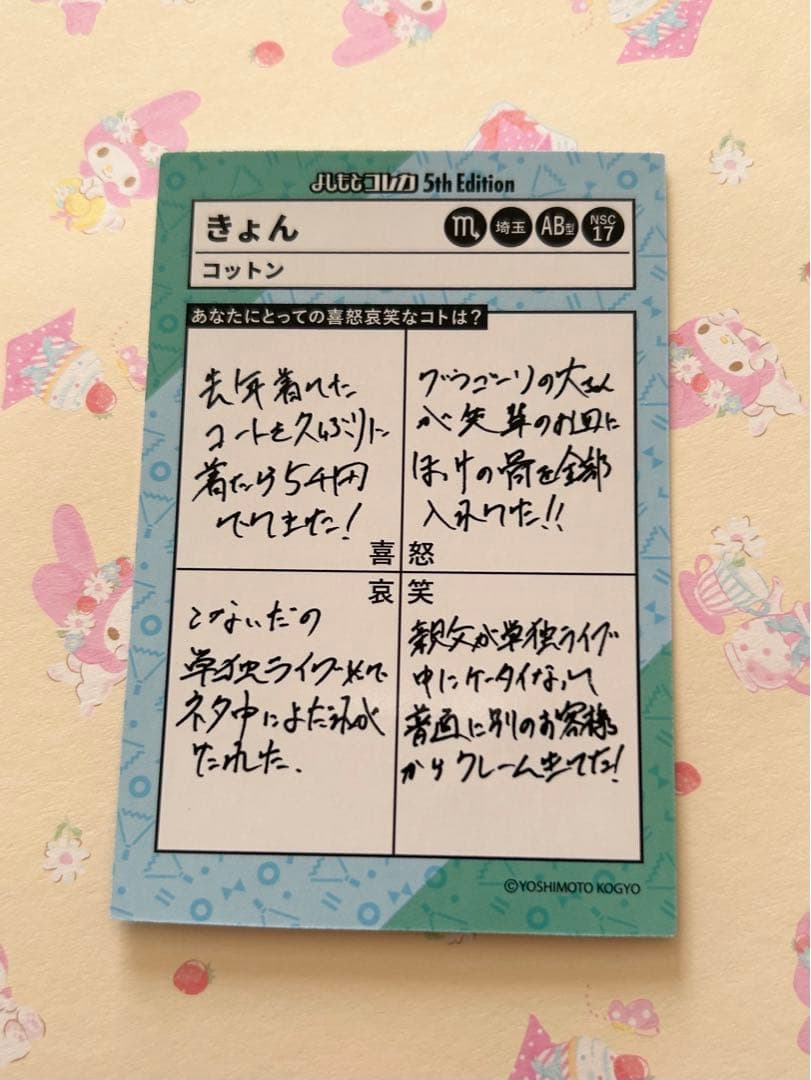 よしもとコレカ 5th Edition
きょん
♏ 埼玉 AB型 NSC 17
コットン
あなたにとっての喜怒哀笑なコトは？
去年着てた
コートを久しぶりに
着たら5千円
でてきた！
喜
グランゴーリの大さん
が先輩のお皿に
ほっけの骨を全部
入れてた!!
怒
哀
こないだの
単独ライブでで
ネタ中によだれが
たれた.
笑
親父が単独ライブ
中にケータイなって
普通に別のお客様
からクレーム出てた！
©YOSHIMOTO KOGYO